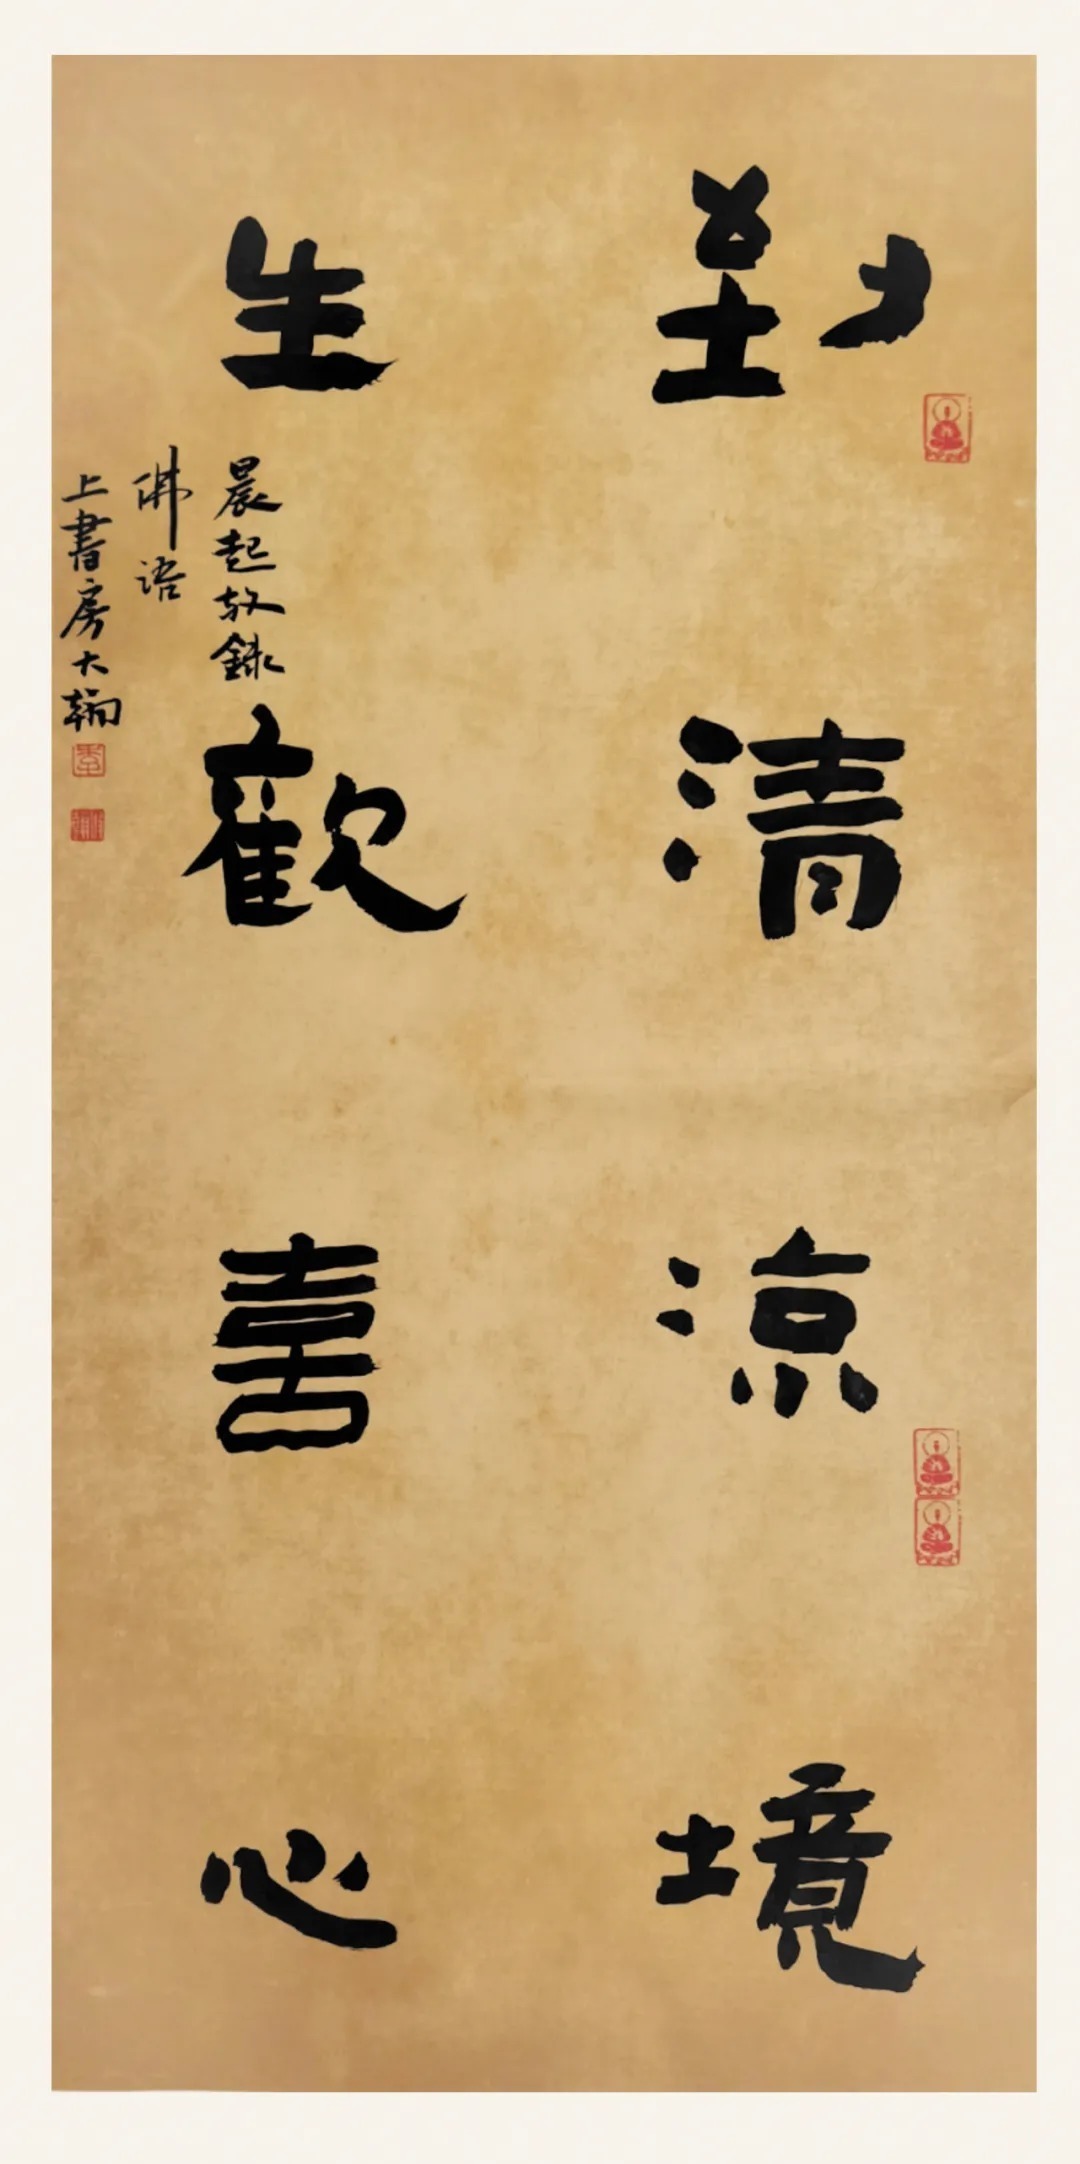 到清涼境
生歡喜心
晨起敬錄
佛语
上書房大翰